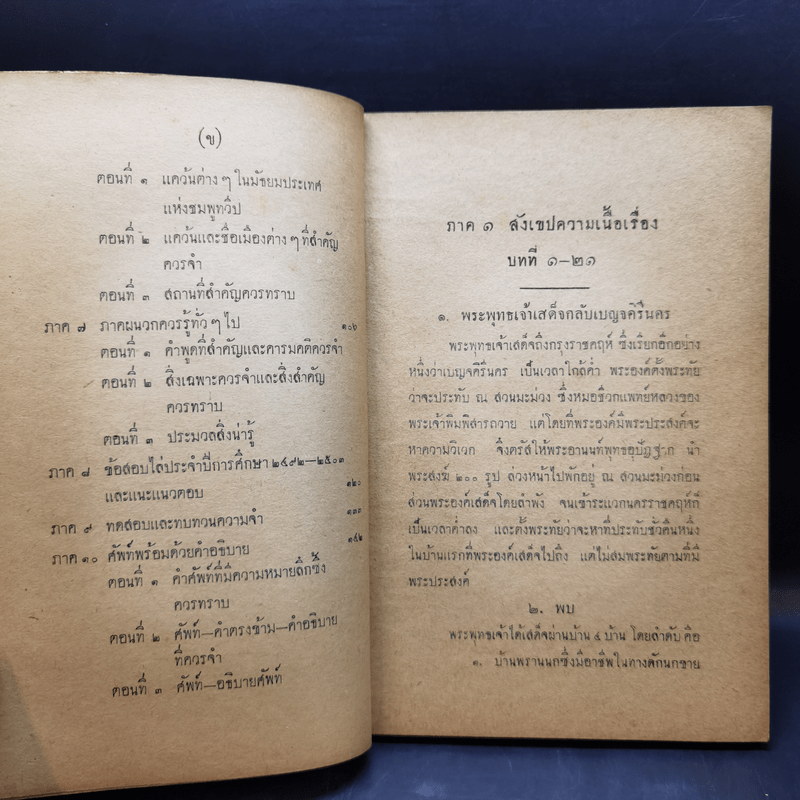 (ข)
ตอนที่ ๑ แคว้นต่าง ๆ ในมัธยมประเทศ
แห่งชมพูทวีป
ตอนที่ ๒ แคว้นและชื่อเมืองต่าง ๆ ที่สำคัญ
ควรจำ
ตอนที่ ๓ สถานที่สำคัญควรทราบ
ภาค ๗ ภาคผนวกควรรู้ทั่ว ๆ ไป ๑๐๖
ตอนที่ ๑ คำพูดที่สำคัญและคารมคติควรจำ
ตอนที่ ๒ สิ่งเฉพาะควรจำและสิ่งสำคัญ
ควรทราบ
ตอนที่ ๓ ประมวลสิ่งน่ารู้
ภาค ๘ ข้อสอบไล่ประจำปีการศึกษา ๒๔๙๒—๒๕๐๓
และแนะแนวตอบ ๑๒๐
ภาค ๙ ทดสอบและทบทวนความจำ ๑๓๐
ภาค ๑๐ ศัพท์พร้อมด้วยคำอธิบาย ๑๔๒
ตอนที่ ๑ คำศัพท์ที่มีความหมายลึกซึ้ง
ควรทราบ
ตอนที่ ๒ ศัพท์—คำตรงข้าม—คำอธิบาย
ที่ควรจำ
ตอนที่ ๓ ศัพท์—อธิบายศัพท์
ภาค ๑ สังเขปความเนื้อเรื่อง
บทที่ ๑–๒๑
๑. พระพุทธเจ้าเสด็จกลับเบญจคิรีนคร
พระพุทธเจ้าเสด็จถึงกรุงราชคฤห์ ซึ่งเรียกอีกอย่าง
หนึ่งว่าเบญจคิรีนคร เป็นเวลาใกล้ค่ำ พระองค์ตั้งพระทัย
ว่าจะประทับ ณ สวนมะม่วง ซึ่งหมอชีวกแพทย์หลวงของ
พระเจ้าพิมพิสารถวาย แต่โดยที่พระองค์มีพระประสงค์จะ
หาความวิเวก จึงตรัสให้พระอานนท์พุทธอุปัฏฐาก นำ
พระสงฆ์ ๒๐๐ รูป ล่วงหน้าไปพักอยู่ ณ สวนมะม่วงก่อน
ส่วนพระองค์เสด็จโดยลำพัง จนเข้าระแวกนครราชคฤห์ก็
เป็นเวลาค่ำลง และตั้งพระทัยว่าจะหาที่ประทับชั่วคืนหนึ่ง
ในบ้านแรกที่พระองค์เสด็จไปถึง แต่ไม่สมพระทัยตามที่มี
พระประสงค์
๒. พบ
พระพุทธเจ้าได้เสด็จผ่านบ้าน ๔ บ้าน โดยลำดับ คือ
๑. บ้านพรานนกซึ่งมีอาชีพในทางดักนกขาย